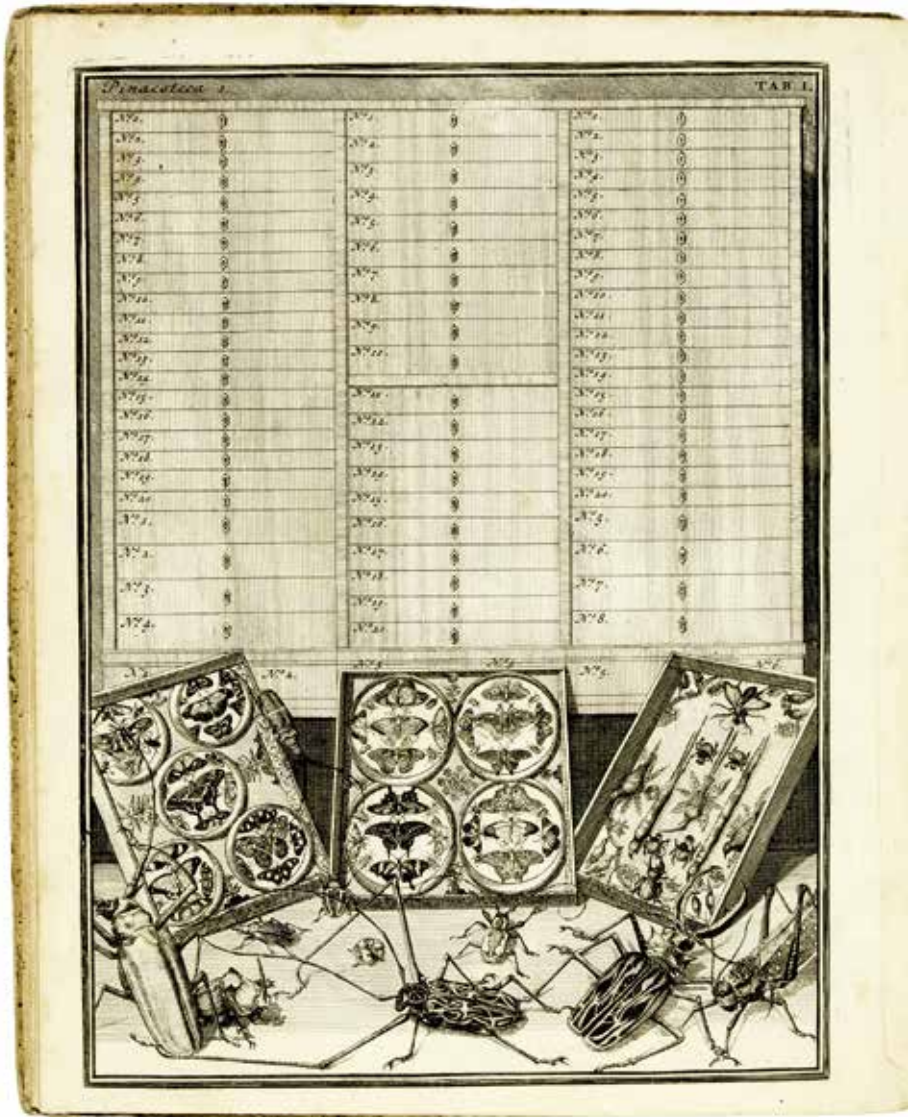 Pinacoteca 1.
TAB I.
N.º 1.
N.º 2.
N.º 3.
N.º 4.
N.º 5.
N.º 6.
N.º 7.
N.º 8.
N.º 9.
N.º 10.
N.º 11.
N.º 12.
N.º 13.
N.º 14.
N.º 15.
N.º 16.
N.º 17.
N.º 18.
N.º 19.
N.º 20.
N.º 1.
N.º 2.
N.º 3.
N.º 4.
N.º 1.
N.º 2.
N.º 3.
N.º 4.
N.º 5.
N.º 6.
N.º 7.
N.º 8.
N.º 9.
N.º 10.
N.º 11.
N.º 12.
N.º 13.
N.º 14.
N.º 15.
N.º 16.
N.º 17.
N.º 18.
N.º 19.
N.º 20.
N.º 1.
N.º 2.
N.º 3.
N.º 4.
N.º 5.
N.º 6.
N.º 7.
N.º 8.
N.º 9.
N.º 10.
N.º 11.
N.º 12.
N.º 13.
N.º 14.
N.º 15.
N.º 16.
N.º 17.
N.º 18.
N.º 19.
N.º 20.
N.º 5.
N.º 6.
N.º 7.
N.º 8.
N.º 2. N.º 3. N.º 5. N.º 6.